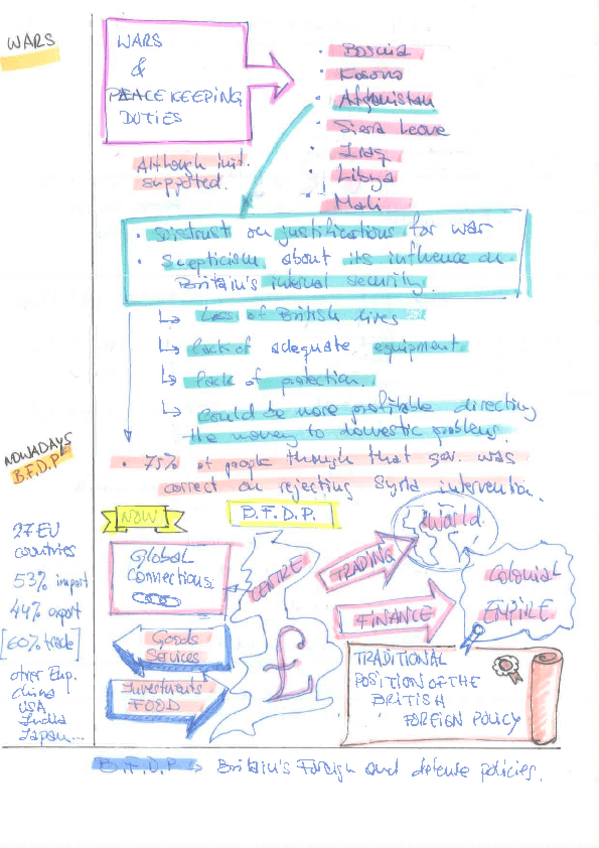 WARS
WARS
&
PEACEKEEPING
DUTIES
Although init.
supported.
• Bosnia
• Kosovo
• Afganistan
• Sierra Leone
• Iraq
• Libya
• Mali
• Distrust on justifications for war
• Scepticism about its influence on
Britain's internal security.
↳ Loss of British lives
↳ lack of adequate equipment
↳ lack of protection.
↳ Could be more profitable directing
the money to domestic problems.
• 75% of people though that gov. was
correct on rejecting Syria intervention.
NOWADAYS
B.F.D.P
27 EU
countries
53% import
44% export
[60% trade]
other Eup.
China
USA
India
Japan...
NOW
B.F.D.P.
Global
Connections
CENTRE
TRADING
World
FINANCE
Colonial
EMPIRE
Goods
Services
Investments
FOOD
£
TRADITIONAL
POSITION OF THE
BRITISH
FOREIGN POLICY
B.F.D.P → Britain's Foreign and defense policies.